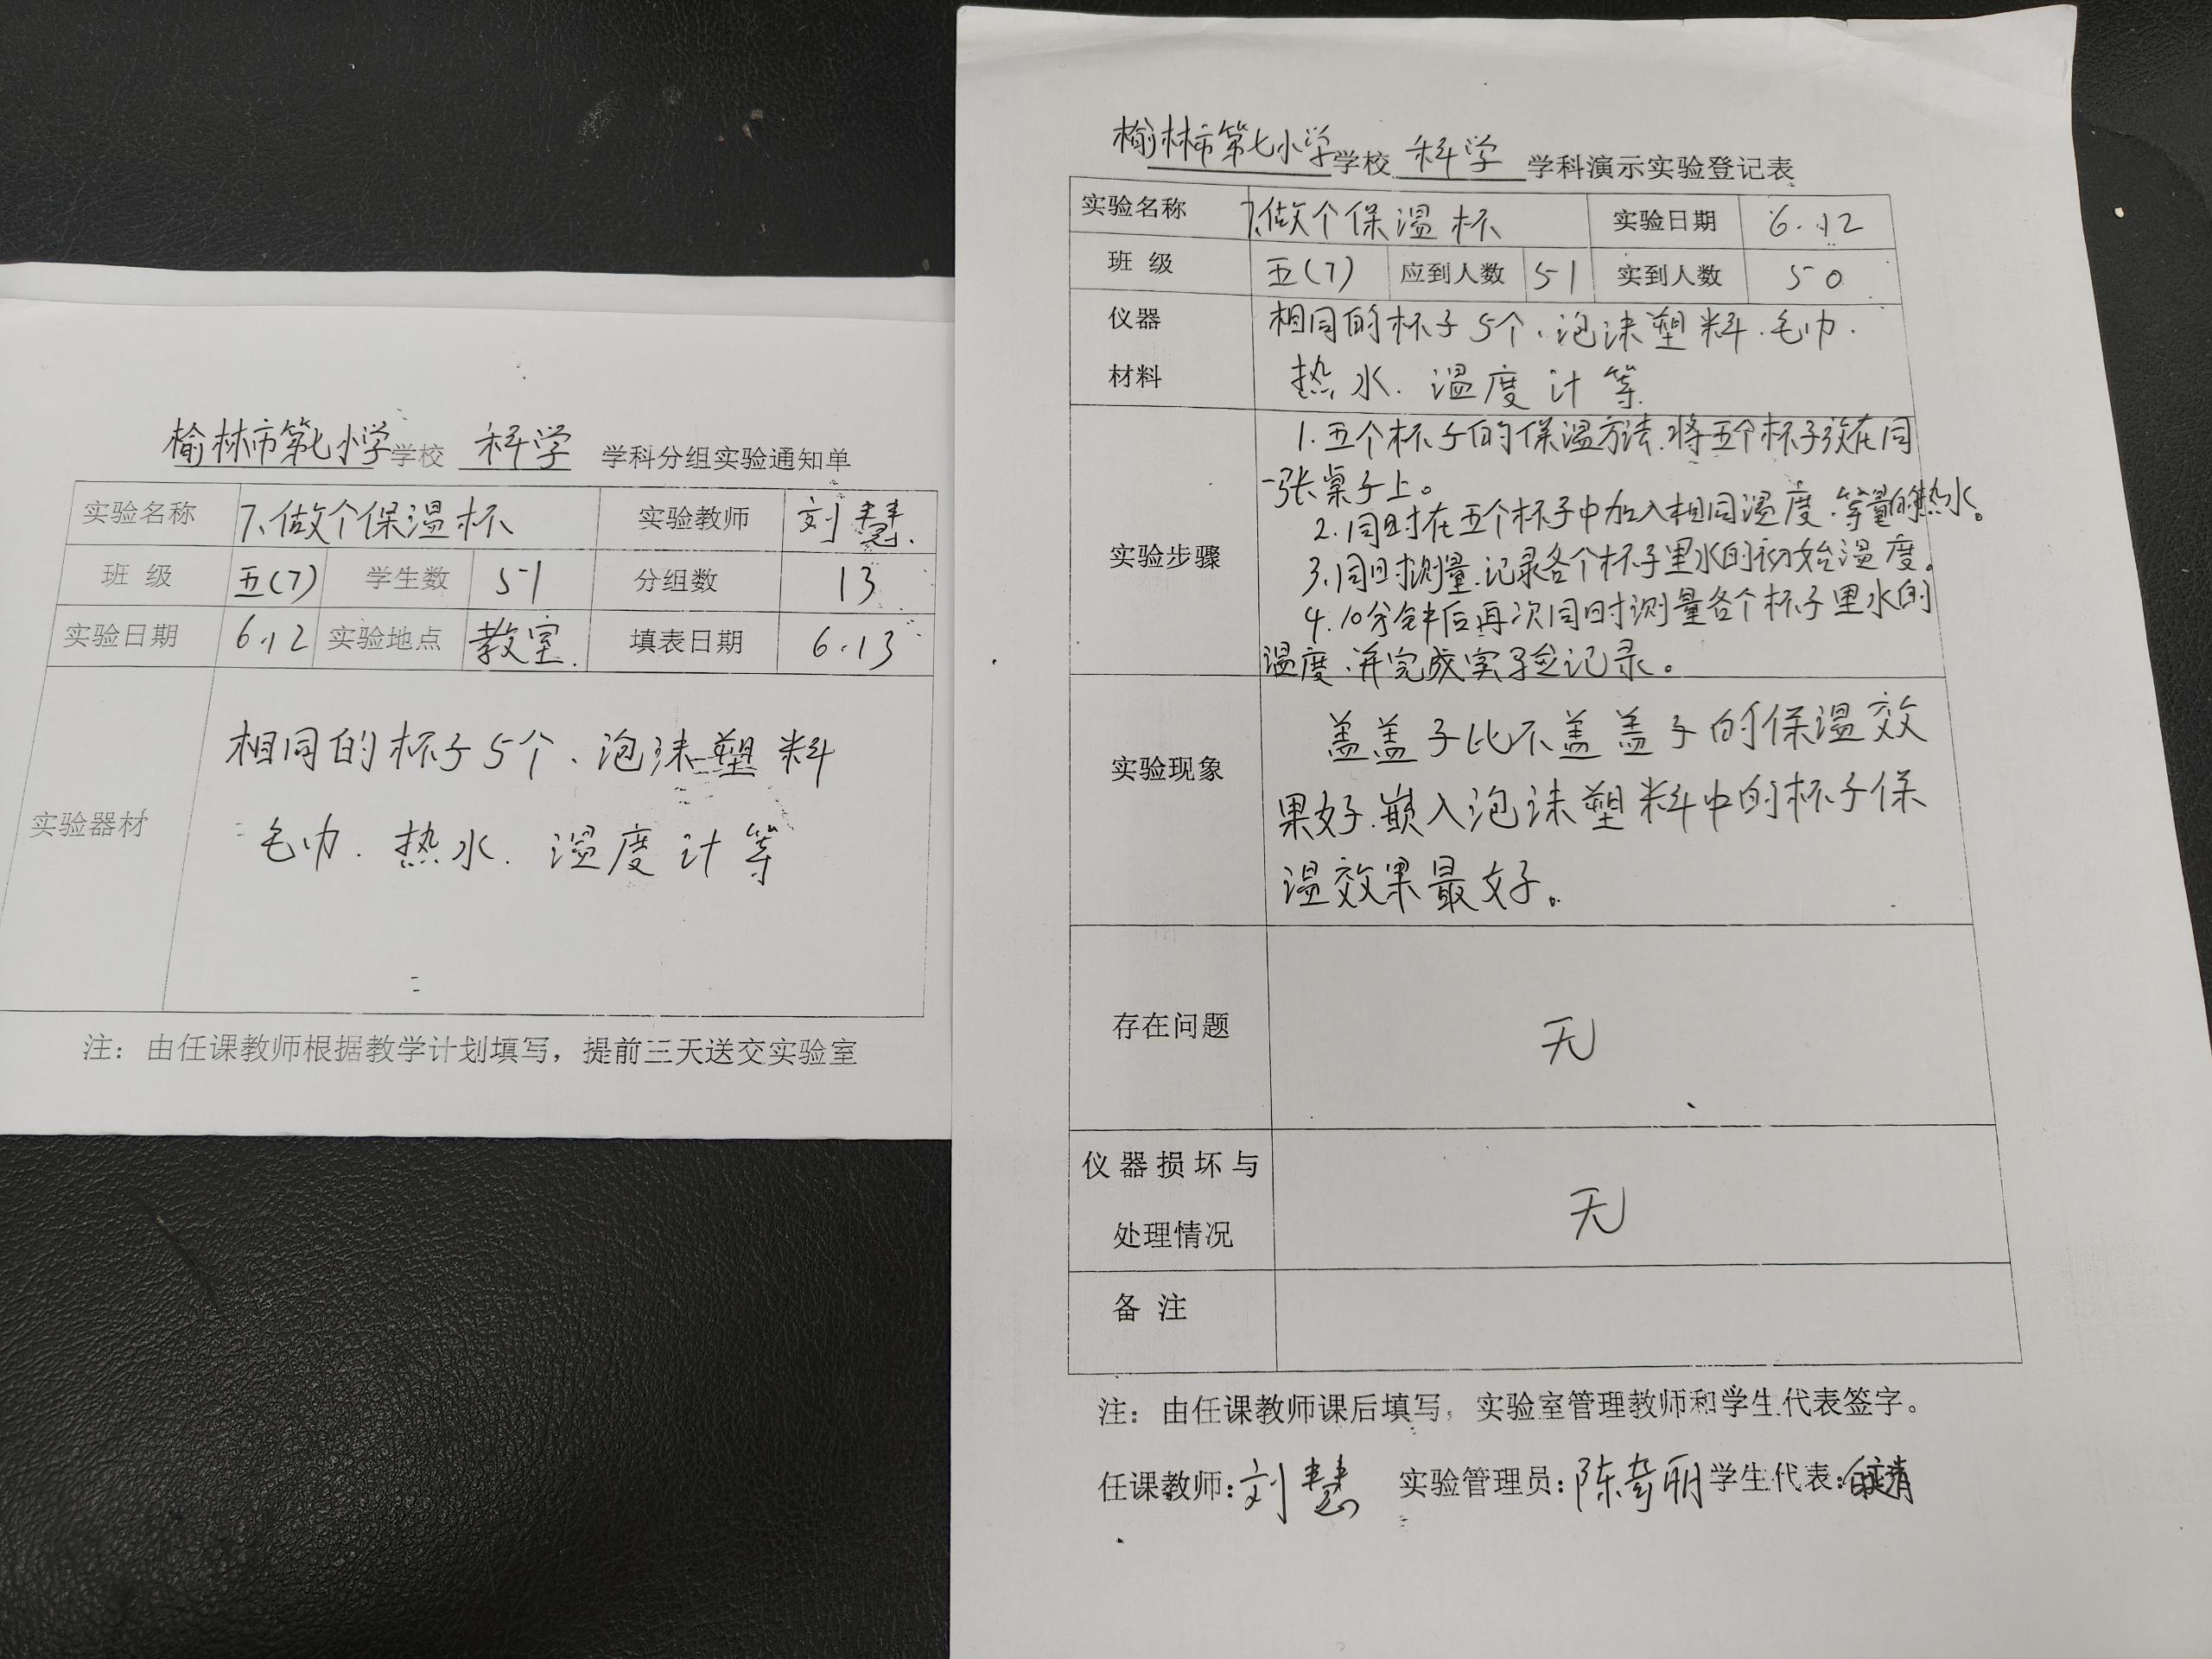 榆林市第七小学学校 科学 学科分组实验通知单
实验名称 7、做个保温杯 实验教师 刘慧.
班 级 五(7) 学生数 51 分组数 13
实验日期 6.12 实验地点 教室. 填表日期 6.13
相同的杯子5个、泡沫塑料
实验器材
毛巾.热水.温度计等
注：由任课教师根据教学计划填写，提前三天送交实验室
榆林市第七小学学校 科学 学科演示实验登记表
实验名称 7、做个保温杯 实验日期 6.12
班 级 五(7) 应到人数 51 实到人数 50
仪器 相同的杯子5个、泡沫塑料.毛巾.
材料 热水.温度计等.
1.五个杯子的保温方法.将五个杯子放在同
一张桌子上。
2.同时在五个杯子中加入相同温度.等量的热水。
实验步骤
3.同时测量.记录各个杯子里水的初始温度。
4.10分钟后再次同时测量各个杯子里水的
温度.并完成实验记录。
盖盖子比不盖盖子的保温效
实验现象
果好.嵌入泡沫塑料中的杯子保
温效果最好。
存在问题 无
仪器损坏与
无
处理情况
备 注
注：由任课教师课后填写，实验室管理教师和学生代表签字。
任课教师：刘慧 实验管理员：陈 丽 学生代表：